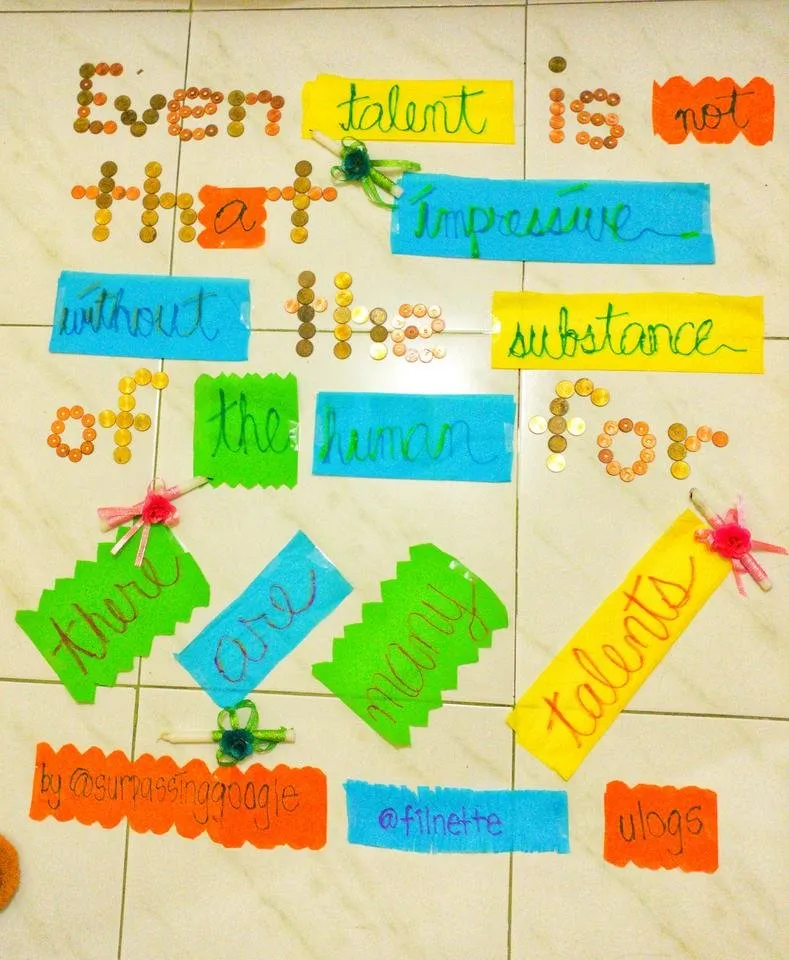 Even talent is not
that impressive
without the substance
of the human for
there are many talents
by @surpassinggoogle @filnette ulogs